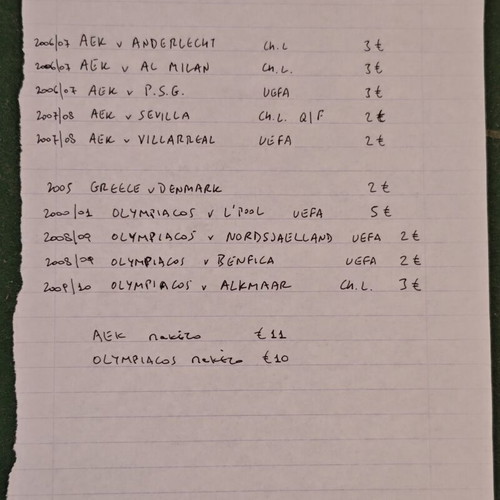 2006/07 AEK v ANDERLECHT CH.L 3 €
2006/07 AEK v AC MILAN CH.L. 3 €
2006/07 AEK v P.S.G. UEFA 3 €
2007/08 AEK v SEVILLA CH.L. Q/F 2 €
2007/08 AEK v VILLARREAL UEFA 2 €
2005 GREECE v DENMARK 2 €
2000/01 OLYMPIACOS v L'POOL UEFA 5 €
2008/09 OLYMPIACOS v NORDSJAELLAND UEFA 2 €
2008/09 OLYMPIACOS v BENFICA UEFA 2 €
2009/10 OLYMPIACOS v ALKMAAR CH.L. 3 €
AEK πακέτο €11
OLYMPIACOS πακέτο €10